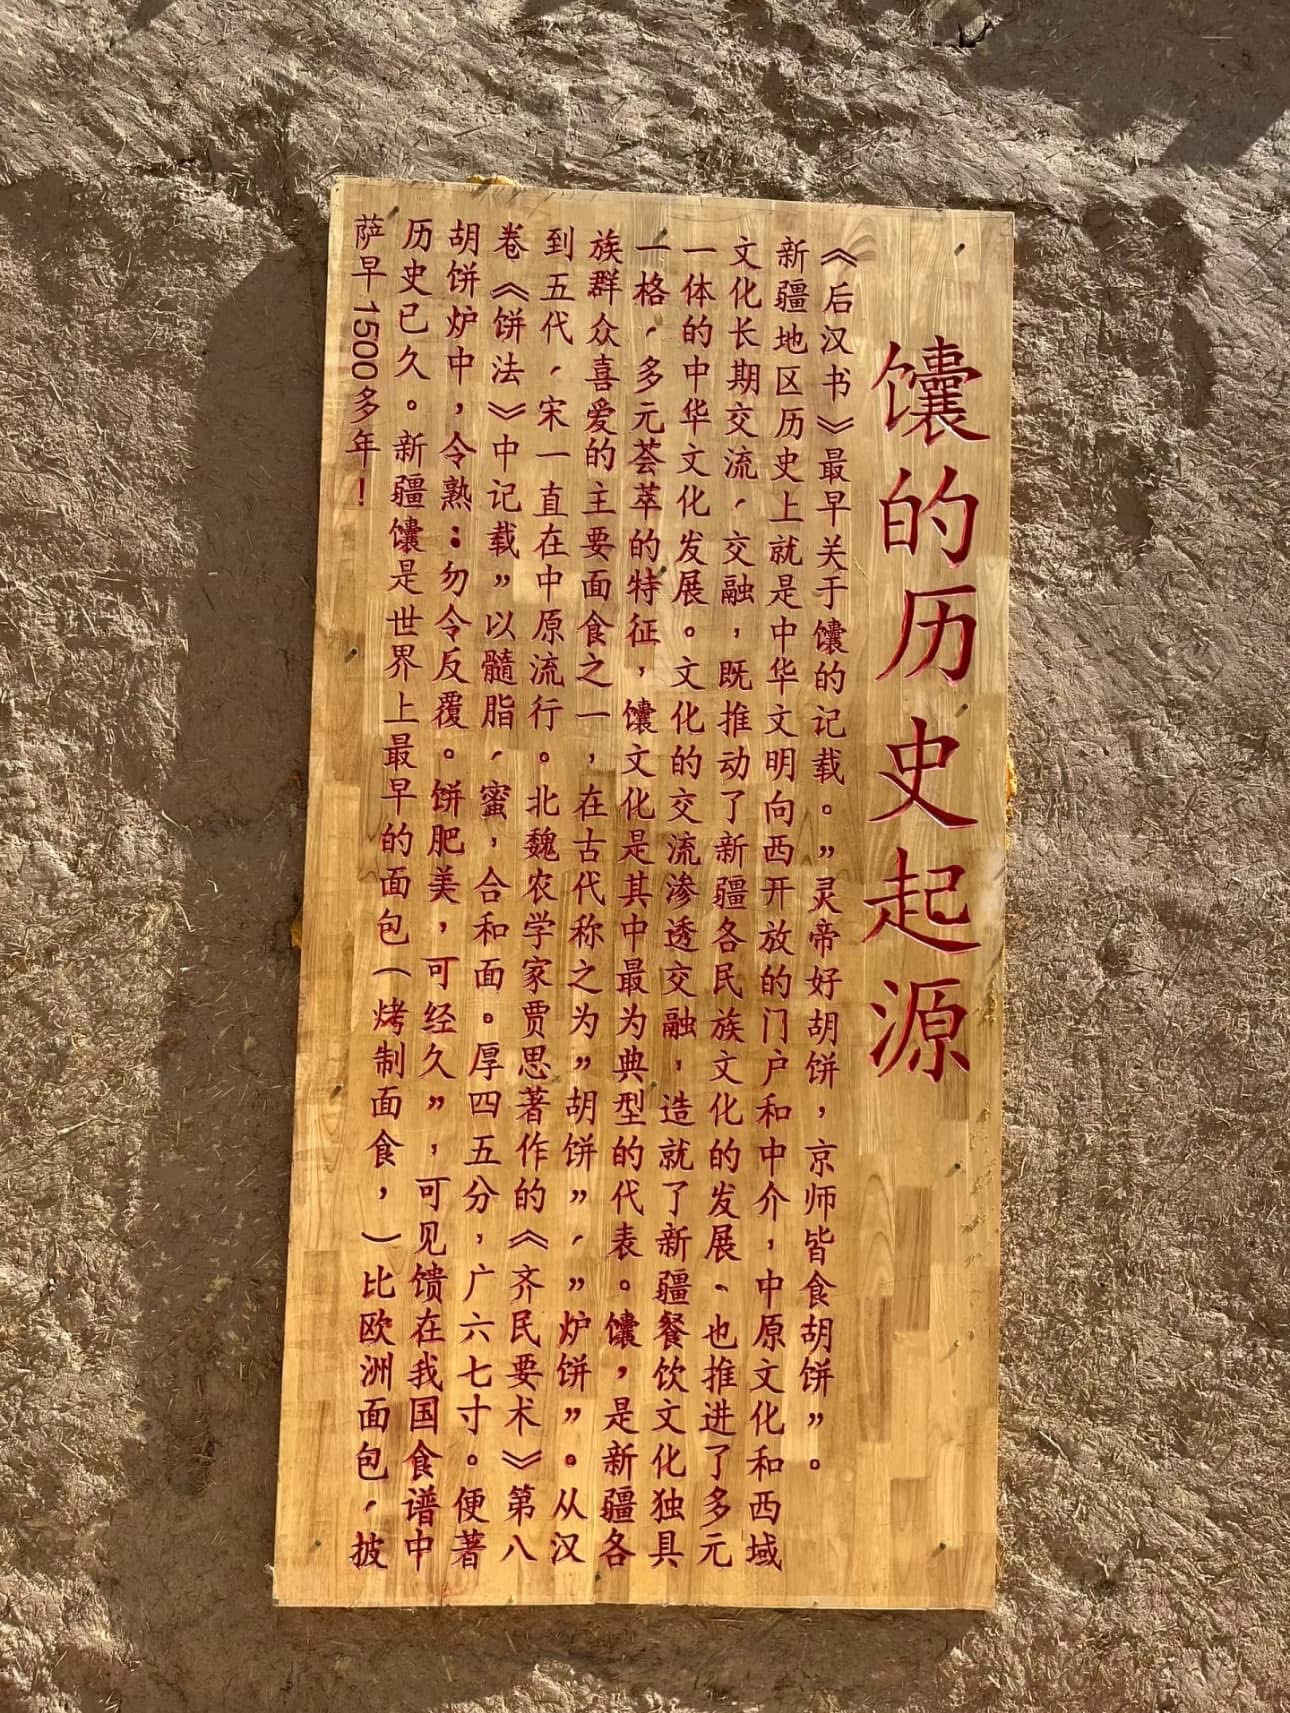 馕的历史起源
《后汉书》最早关手馕的记载。”灵帝好胡饼，京师皆食胡饼”。
新疆地区历史上就是中华文明向西开放的门户和中介，中原文化和西域
文化长期交流，交融，既推动了新疆各民族文化的发展、也推进了多元
一体的中华文化发展。文化的交流渗透交融，造就了新疆餐饮文化独具
一格，多元荟萃的特征，馕文化是其中最为典型的代表。馕，是新疆各
族群众喜爱的主要面食之一，在古代称之为”胡饼”，”炉饼”。从汉
到五代，宋一直在中原流行。北魏农学家贾思著作的《齐民要术》第八
卷《饼法》中记载”以髓脂，蜜，合和面。厚四五分，广六七寸。便著
胡饼炉中，令熟：勿令反覆。饼肥美，可经久”，可见馈在我国食谱中
历史已久。新疆馕是世界上最早的面包（烤制面食，）比欧洲面包，披
萨早1500多年！